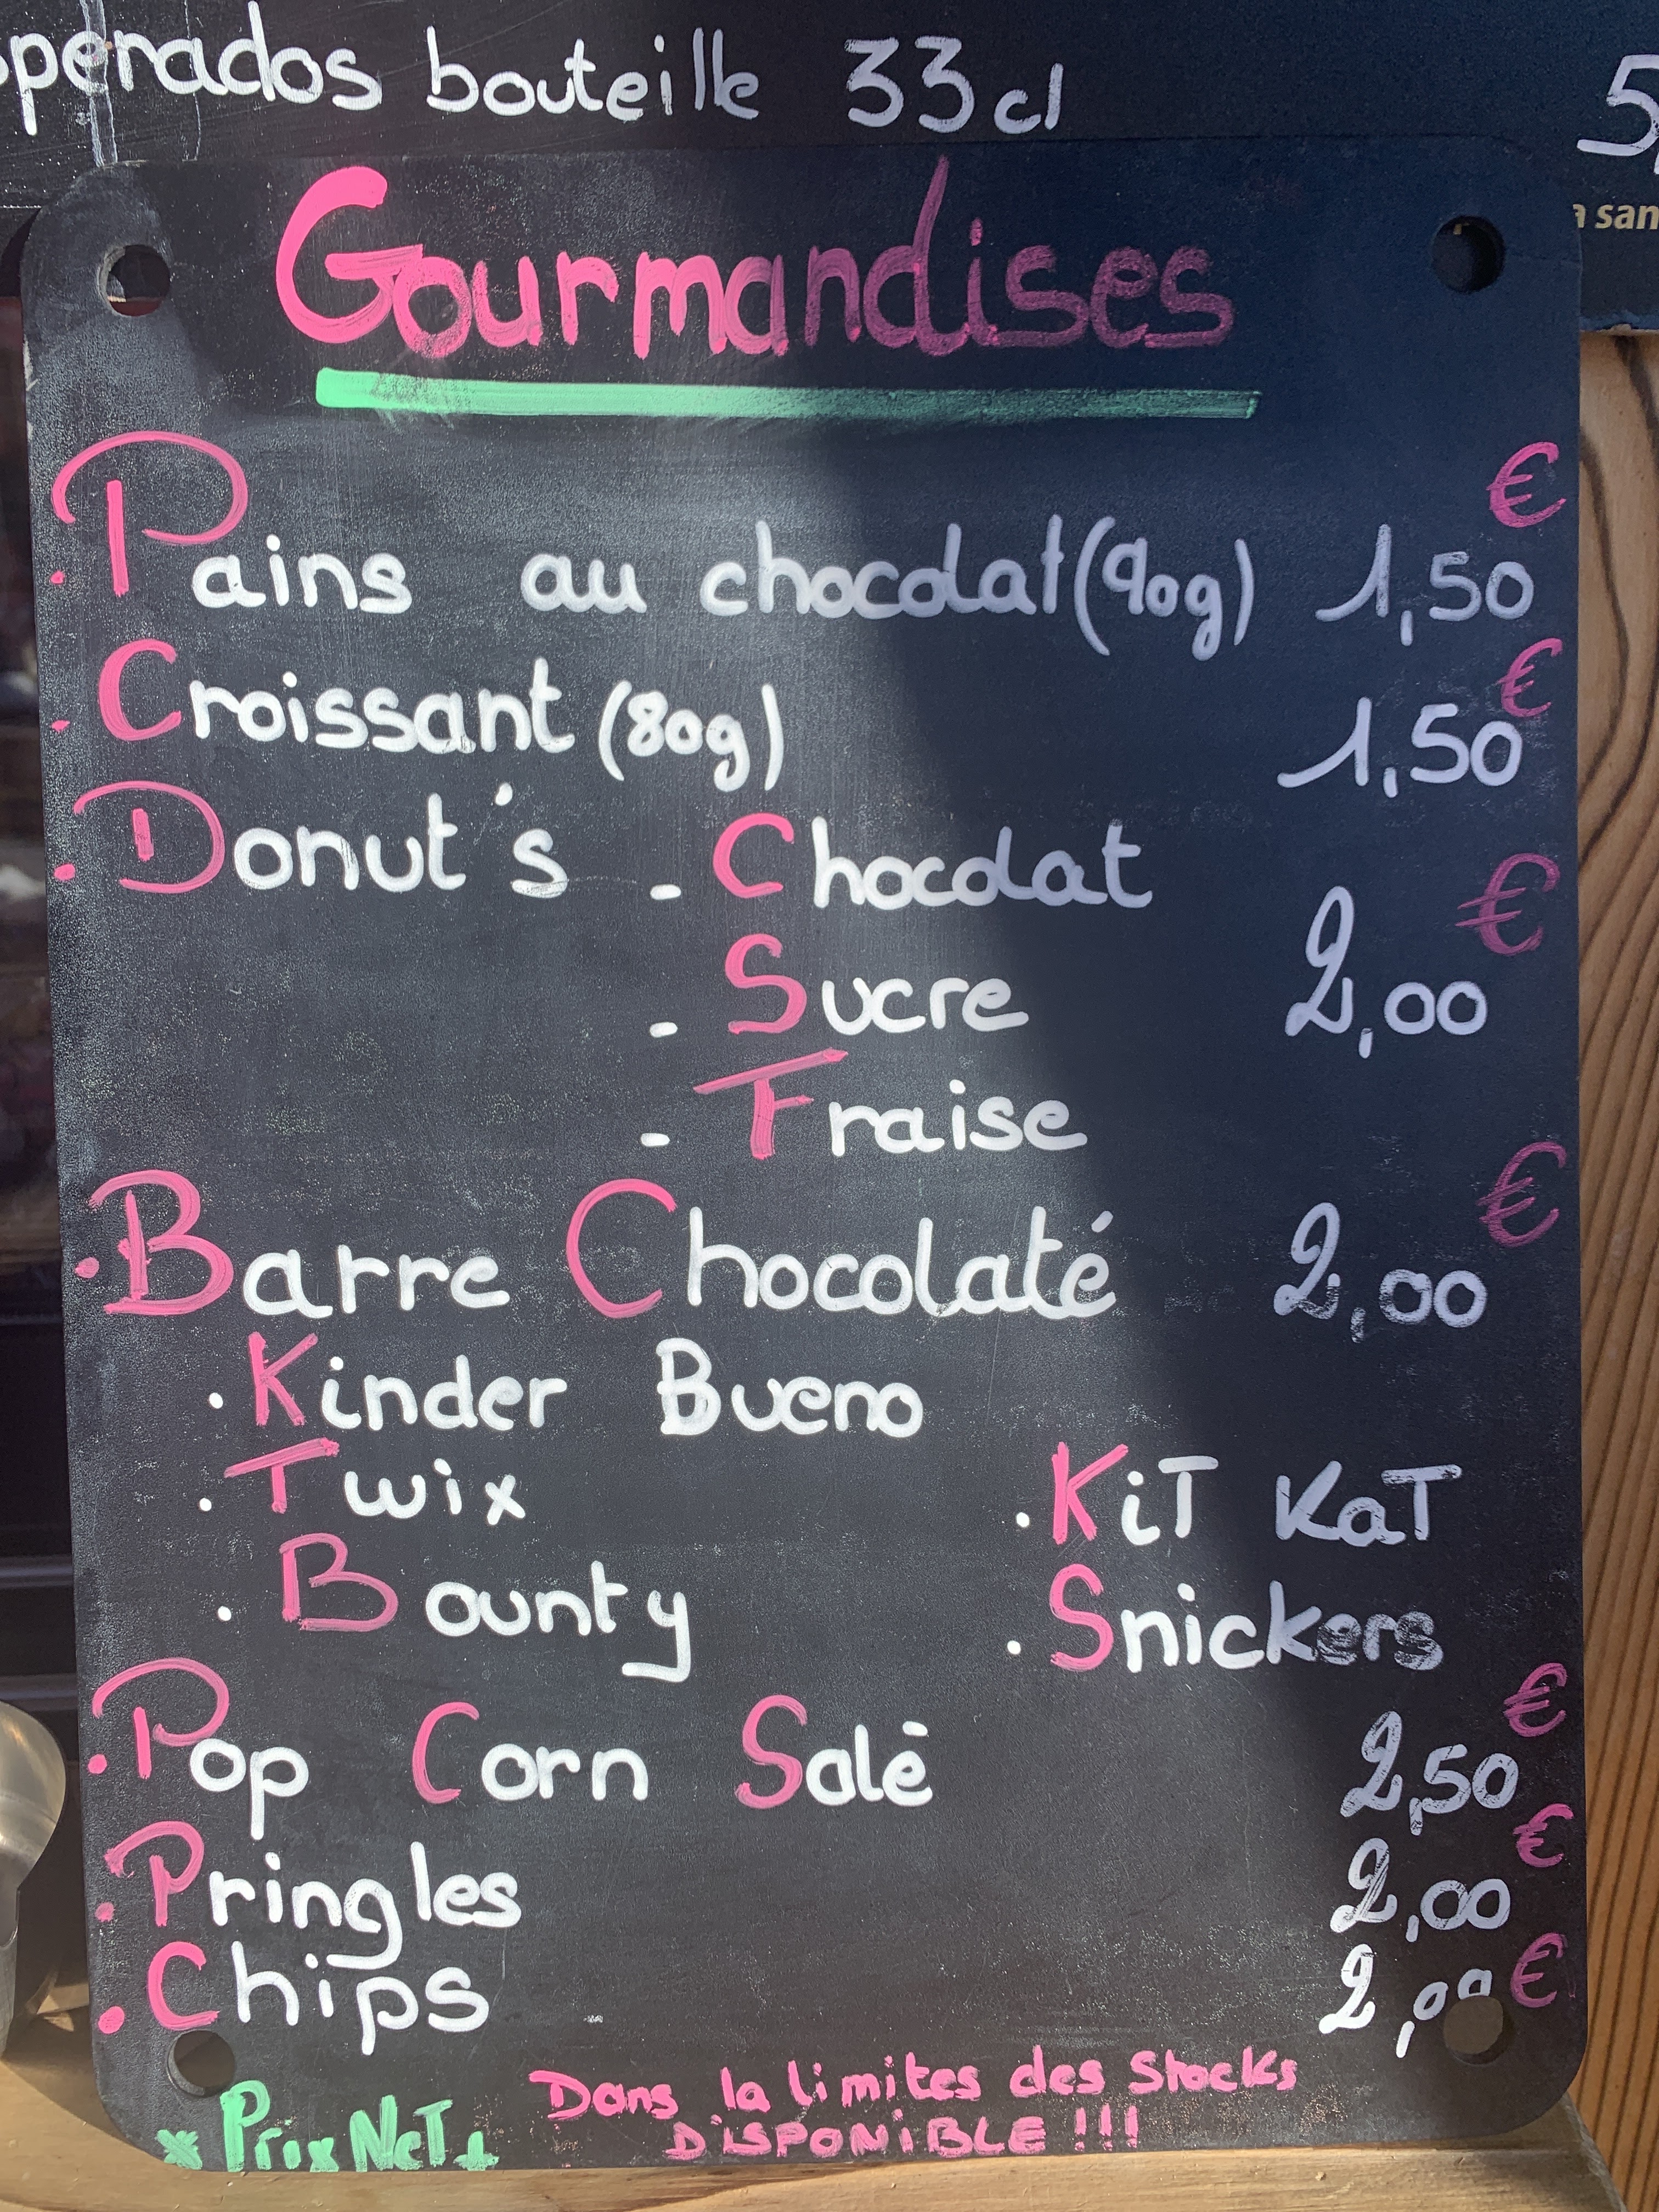 bouteille 33cl
Gourmandises
. Pains au chocolat (90g) 1,50 €
. Croissant (80g) 1,50 €
. Donut's - Chocolat
- Sucre 2,00 €
- Fraise
. Barre Chocolaté 2,00 €
. Kinder Bueno
. Twix . KiT KaT
. Bounty . Snickers
. Pop Corn Salé 2,50 €
. Pringles 2,00 €
. Chips 2,00 €
Dans la limites des Stocks
DiSPONiBLE !!!
* Prix NeT *